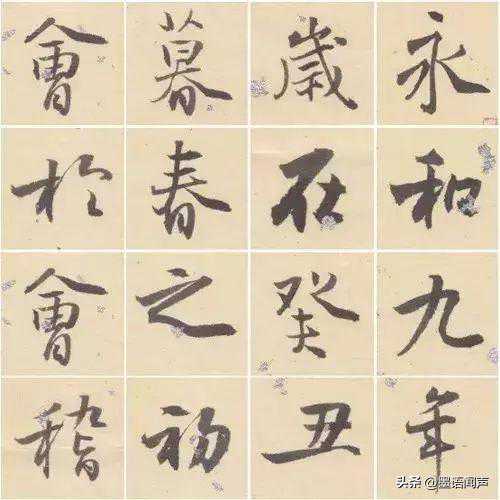 永和九年
歲在癸丑
暮春之初
會於會稽
头条 @墨语闻声